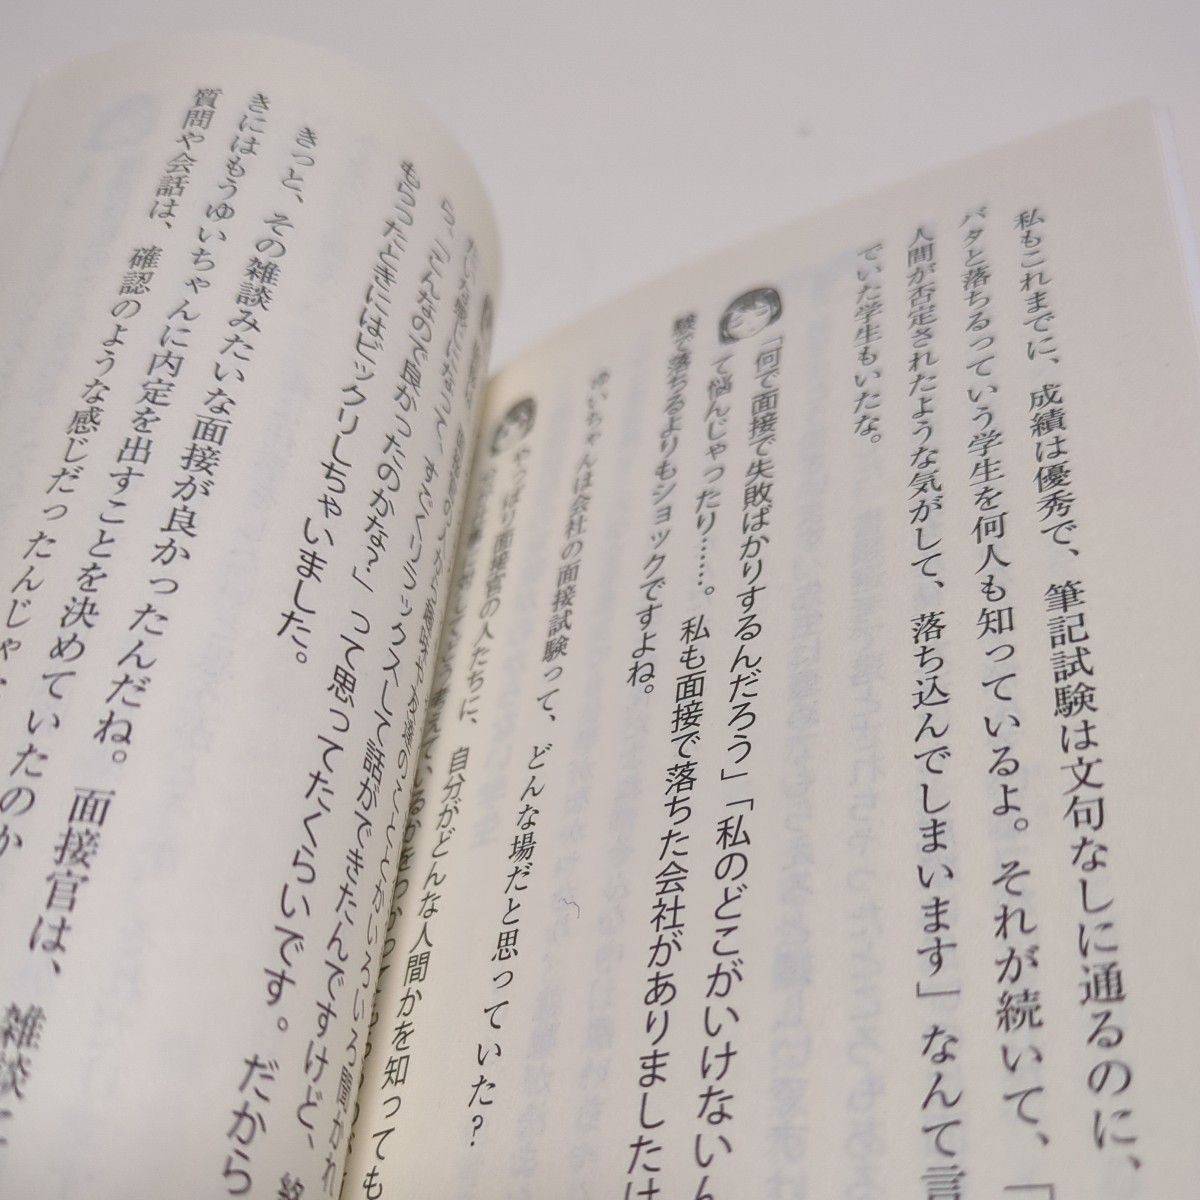 私もこれまでに、成績は優秀で、筆記試験は文句なしに通るのに、
バタと落ちるっていう学生を何人も知っているよ。それが続いて、「
人間が否定されたような気がして、落ち込んでしまいます」なんて言
でいた学生もいたな。
「何で面接で失敗ばかりするんだろう」「私のどこがいけないん
て悩んじゃったり……。私も面接で落ちた会社がありましたけ
験で落ちるよりもショックですよね。
ゆいちゃんは会社の面接試験って、どんな場だと思っていた？
やっぱり面接官の人たちに、自分がどんな人間かを知っても
考えているかをわかっても
すごくリラックスして話ができたんですけど、
ら、「こんなので良かったのかな？」って思ってたくらいです。だから
もらったときにはビックリしちゃいました。
きっと、その雑談みたいな面接が良かったんだね。面接官は、雑談
きにはもうゆいちゃんに内定を出すことを決めていたのか
質問や会話は、確認のような感じだったんじゃ